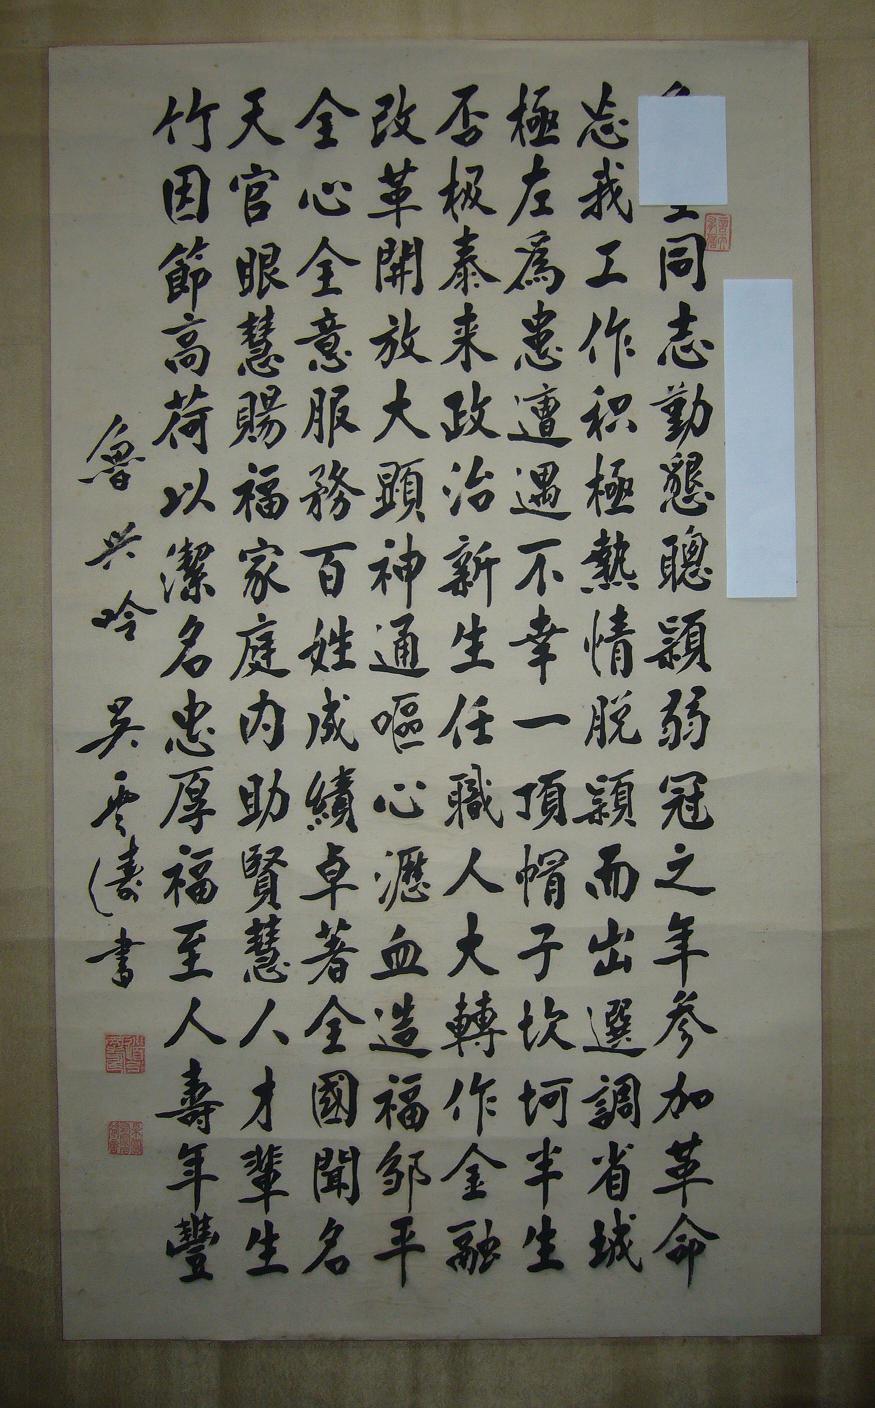 同志勤懇聰穎弱冠之年参加革命
忘我工作积極熱情脱穎而出選調省城
極左爲患遭遇不幸一頂帽子坎坷半生
否极泰来政治新生任職人大轉作金融
改革開放大顕神通嘔心瀝血造福邹平
全心全意服務百姓成績卓著全國聞名
天官眼慧賜福家庭内助賢慧人才輩生
竹因節高荷以潔名忠厚福至人壽年豐
魯兴吟 吴云濤書